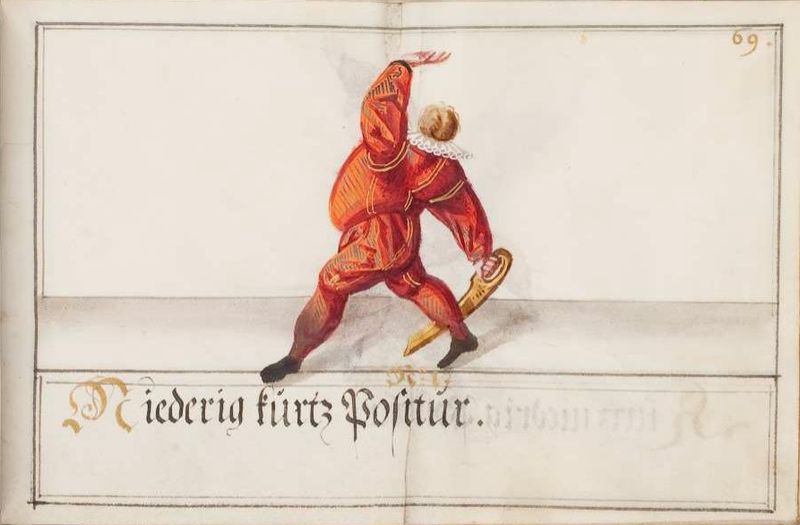 69.
Niederig kürtz Positür.